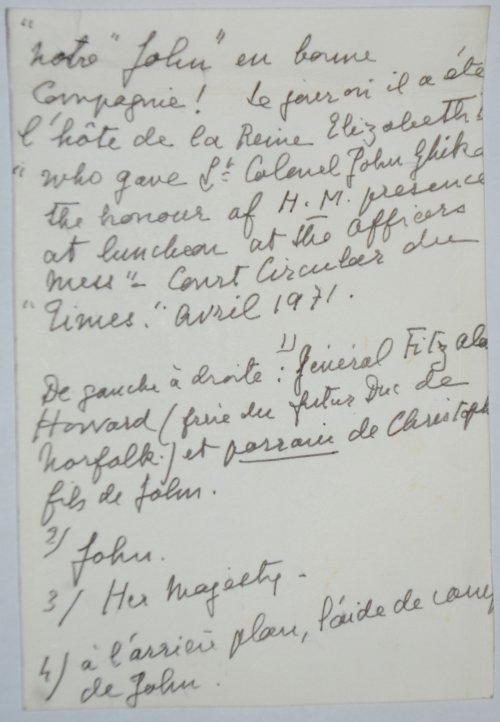 "
notre "John" en bonne
Compagnie! Le jour où il a été
l'hôte de la Reine Elizabeth
"who gave Lt Colonel John Ghika
the honour of H.M. presence
at luncheon at the Officers
Mess" - Court Circular du
"Times." avril 1971.
De gauche à droite: 1) Général Fitzala
Howard (frère du futur Duc de
Norfolk.) et parrain de Christoph
fils de John.
2) John.
3) Her Majesty.
4) à l'arrière plan, l'aide de camp
de John.